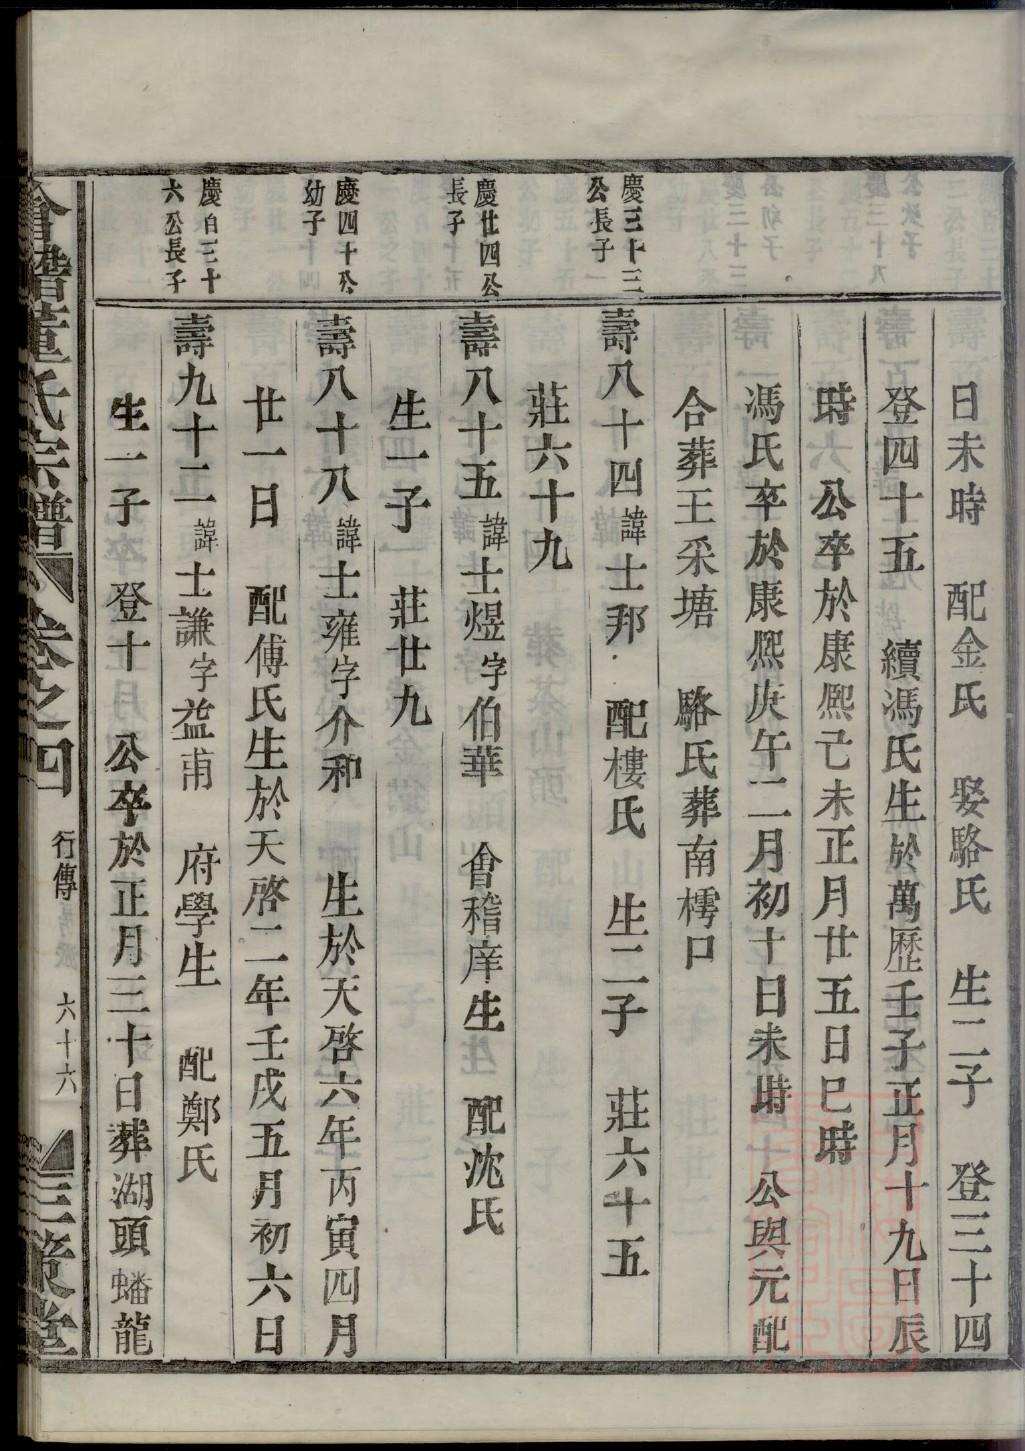 日未時　配金氏　娶駱氏　生二子　登三十四
登四十五　續馮氏生於萬歷壬子正月十九日辰
時　公卒於康熙己未正月廿五日巳時
馮氏卒於康熙庚午二月初十日未時　公與元配
合葬王采塘　駱氏葬南樗口
慶三十三
公長子
壽八十四諱士邦　配樓氏　生二子　莊六十五
莊六十九
慶廿四公
長子
壽八十五諱士煜字伯華　會稽庠生　配沈氏
生一子　莊廿九
慶四十公
幼子
壽八十八諱士雍字介和　生於天啓六年丙寅四月
廿一日　配傅氏生於天啓二年壬戌五月初六日
慶百三十
六公長子
壽九十二諱士謙字益甫　府學生　配鄭氏
生一子　登十　公卒於正月三十日葬湖頭蟠龍
會稽董氏宗譜　卷之四　行傳　六十六　三策堂